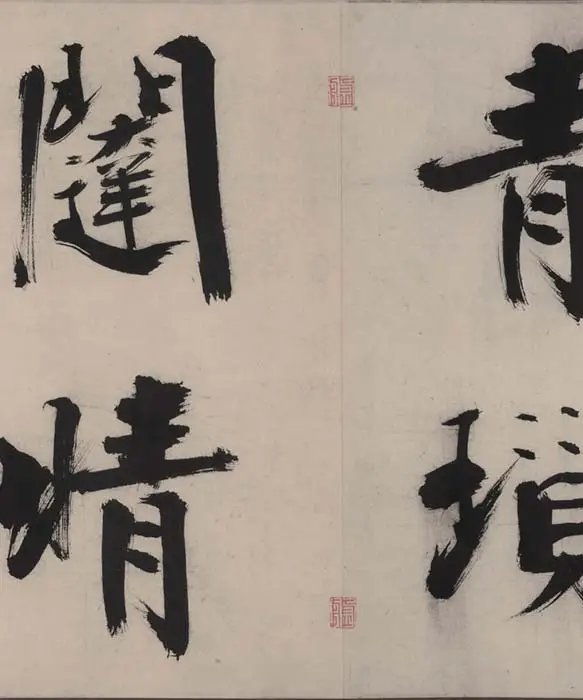 青瑣
闥晴